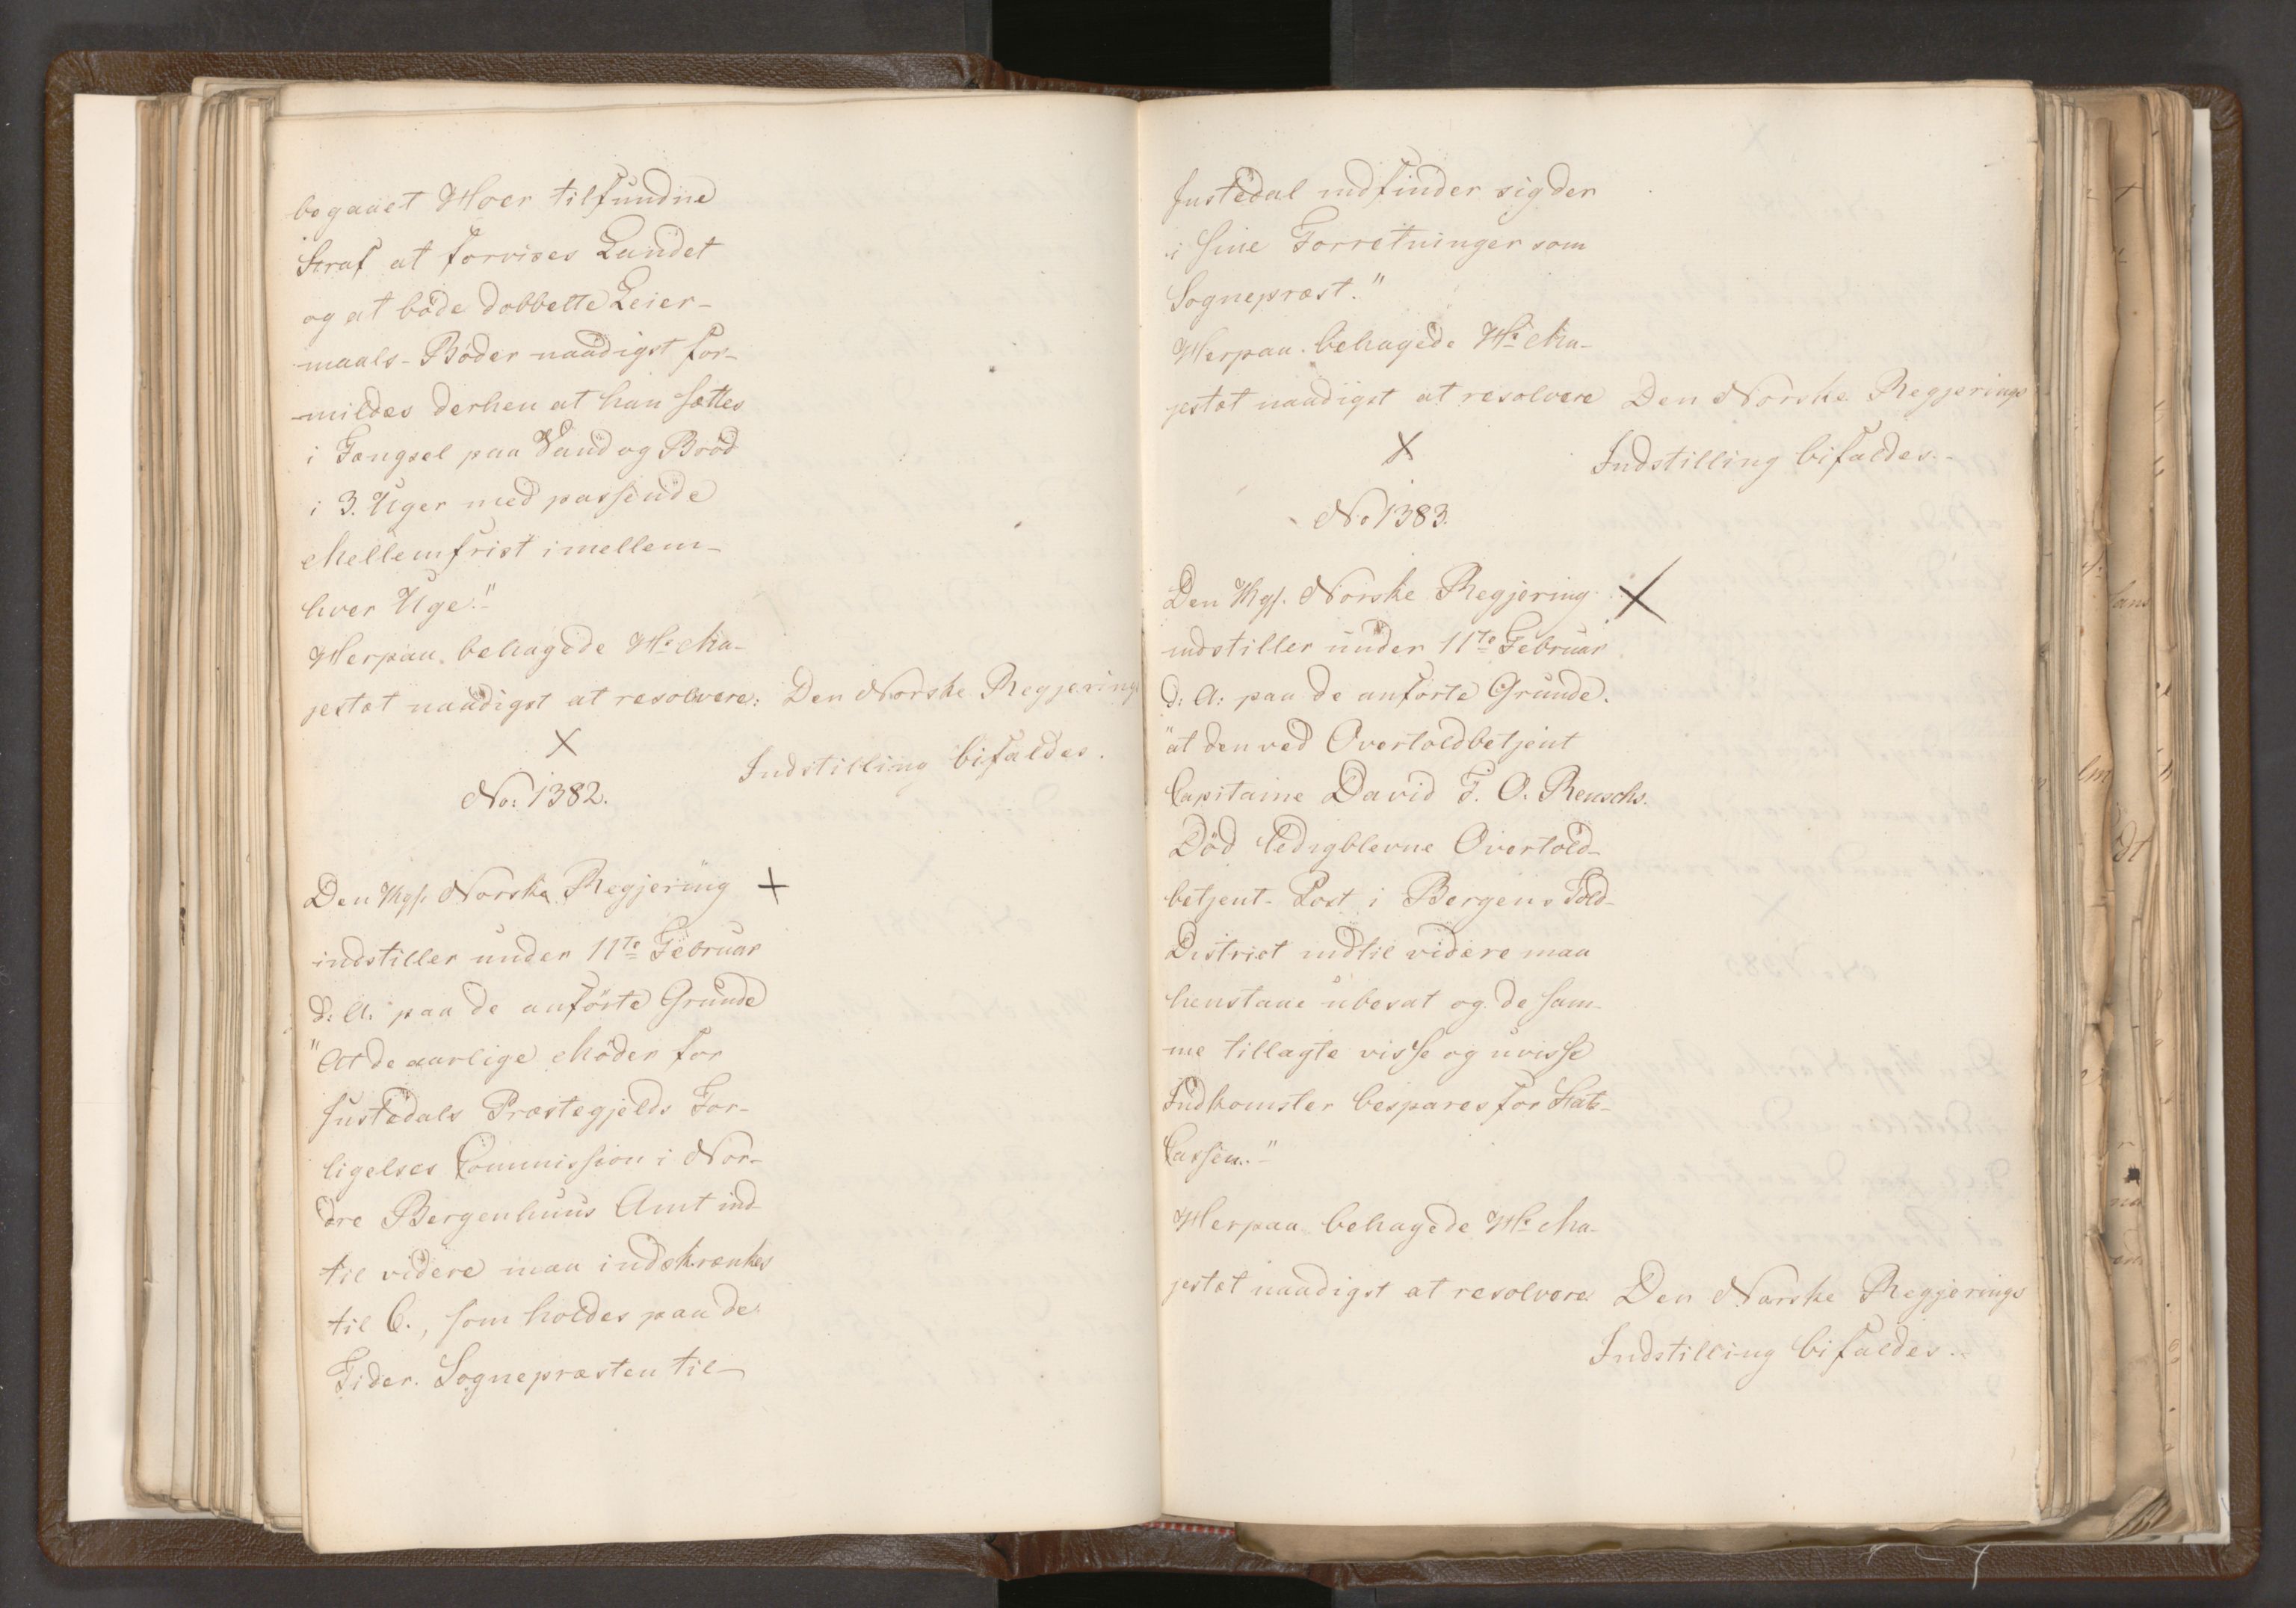 begaaet Hoer tilfundne
Straf at forvises Landet
og at böde dobbelte Leier-
maals-Böder naadigst for-
mildes derhen at han sættes
i Fængsel paa Vand og Bröd
i 3. Uger med passende
Mellemfrist imellem-
hver Uge."
Herpaa behagede Hs. Ma-
jestæt naadigst at resolvere: Den Norske Regjerings
Indstilling bifaldes.
No: 1382.
Den Kgs. Norske Regjering
indstiller under 11te Februar
d: A: paa de anförte Grunde
"At de aarlige Möder for
Justedals Præstegjelds For-
ligelses Commission i Nor-
dre Bergenhuus Amt ind-
til videre maa indskrænkes
til 6., som holdes paa de
Tider. Sognepræsten til-
Justedal indfinder sig der
i sine Forretninger som
Sognepræst."
Herpaa behagede Hs. Ma-
jestæt naadigst at resolvere Den Norske Regjerings
Indstilling bifaldes.
No 1383.
Den Kgs. Norske Regjering
indstiller under 11te Februar
d: A: paa de anförte Grunde.
"at den ved Overtoldbetjent
Capitaine David F. O. Reuschs.
Död ledigblevne Overtold-
betjent-Post i Bergens Told-
District indtil videre maa
henstaae ubesat og de sam-
me tillagte visse og uvisse
Indkomster bespares for Stats-
Cassen."
Herpaa behagede Hs. Ma-
jestæt naadigst at resolvere Den Norske Regjerings
Indstilling bifaldes.